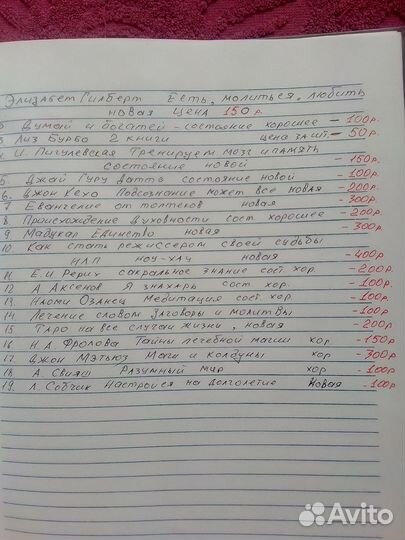 Элизабет Гилберт Есть, молиться, любить
новая цена 150 р.
Думай и богатей - состояние хорошее - 100р.
Лиз Бурбо 2 книги цена за шт. - 50р.
И. Пигулевская Тренируем мозг и память
состояние новой - 150р.
5. Джай Гуру Датта состояние новой - 100р.
6. Джон Кехо Подсознание может все новая - 200р.
7 Евангелие от толтеков новая - 300р.
8 Происхождение Духовности сост хорошее - 200р.
9 Мадукар Единство новая - 300р.
10 Как стать режиссером своей судьбы
НЛП ноу-хау новая - 400р
11. Е.и Рерих сакральное знание сост хор. - 200р.
12 А Аксенов Я знахарь сост хор. - 100р.
13. Наоми Озанец Медитация сост. хор - 100р.
14. Лечение словом Заговоры и молитвы - 100р
15 Таро на все случаи жизни, новая - 200р.
16 Н.А Фролова Тайны лечебной магии хор - 150р
17. Джон Мэтьюз Маги и Колдуны хор - 300р
18. А. Свияш Разумный мир хор - 100р.
19. Л. Собчик Настройся на долголетие Новая - 100р
Avito